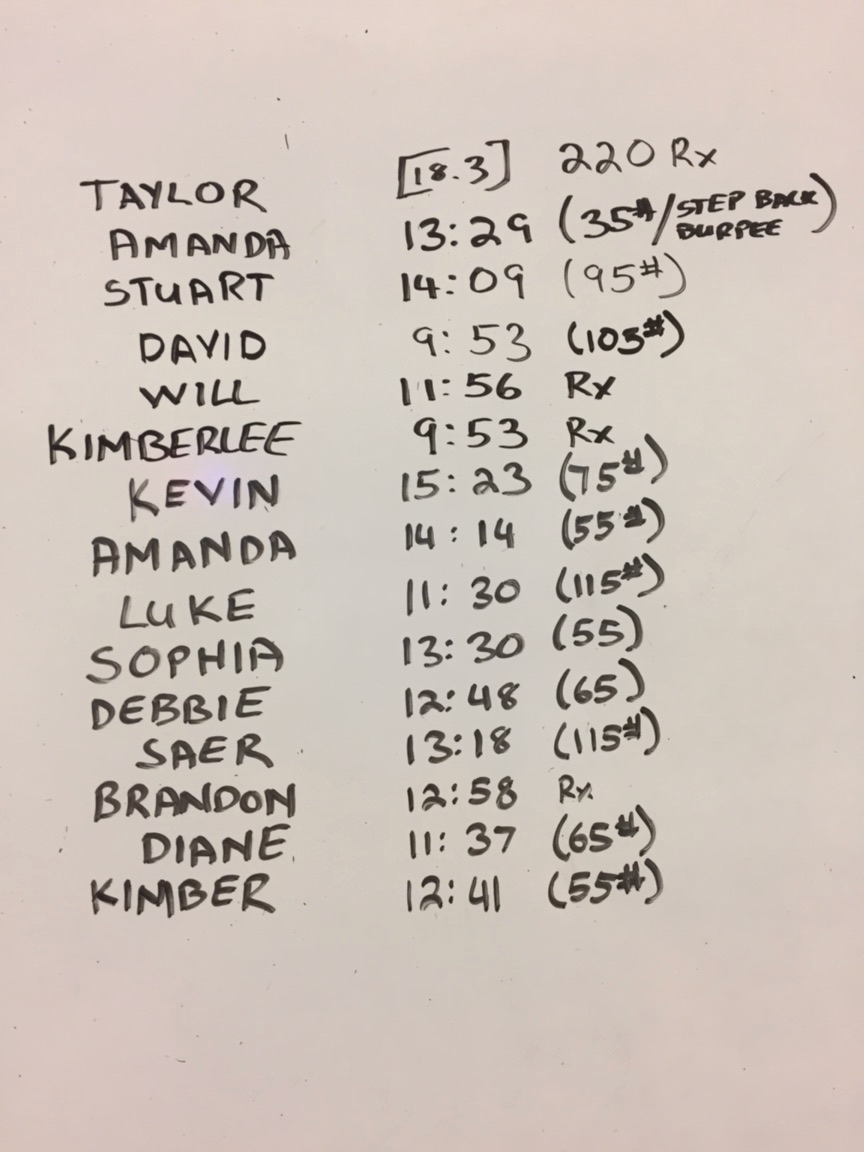 TAYLOR [18.3] 220 Rx
AMANDA 13:29 (35#/STEP BACK BURPEE)
STUART 14:09 (95#)
DAVID 9:53 (105#)
WILL 11:56 Rx
KIMBERLEE 9:53 Rx
KEVIN 15:23 (75#)
AMANDA 14:14 (55#)
LUKE 11:30 (115#)
SOPHIA 13:30 (55)
DEBBIE 12:48 (65)
SAER 13:18 (115#)
BRANDON 12:58 Rx
DIANE 11:37 (65#)
KIMBER 12:41 (55#)